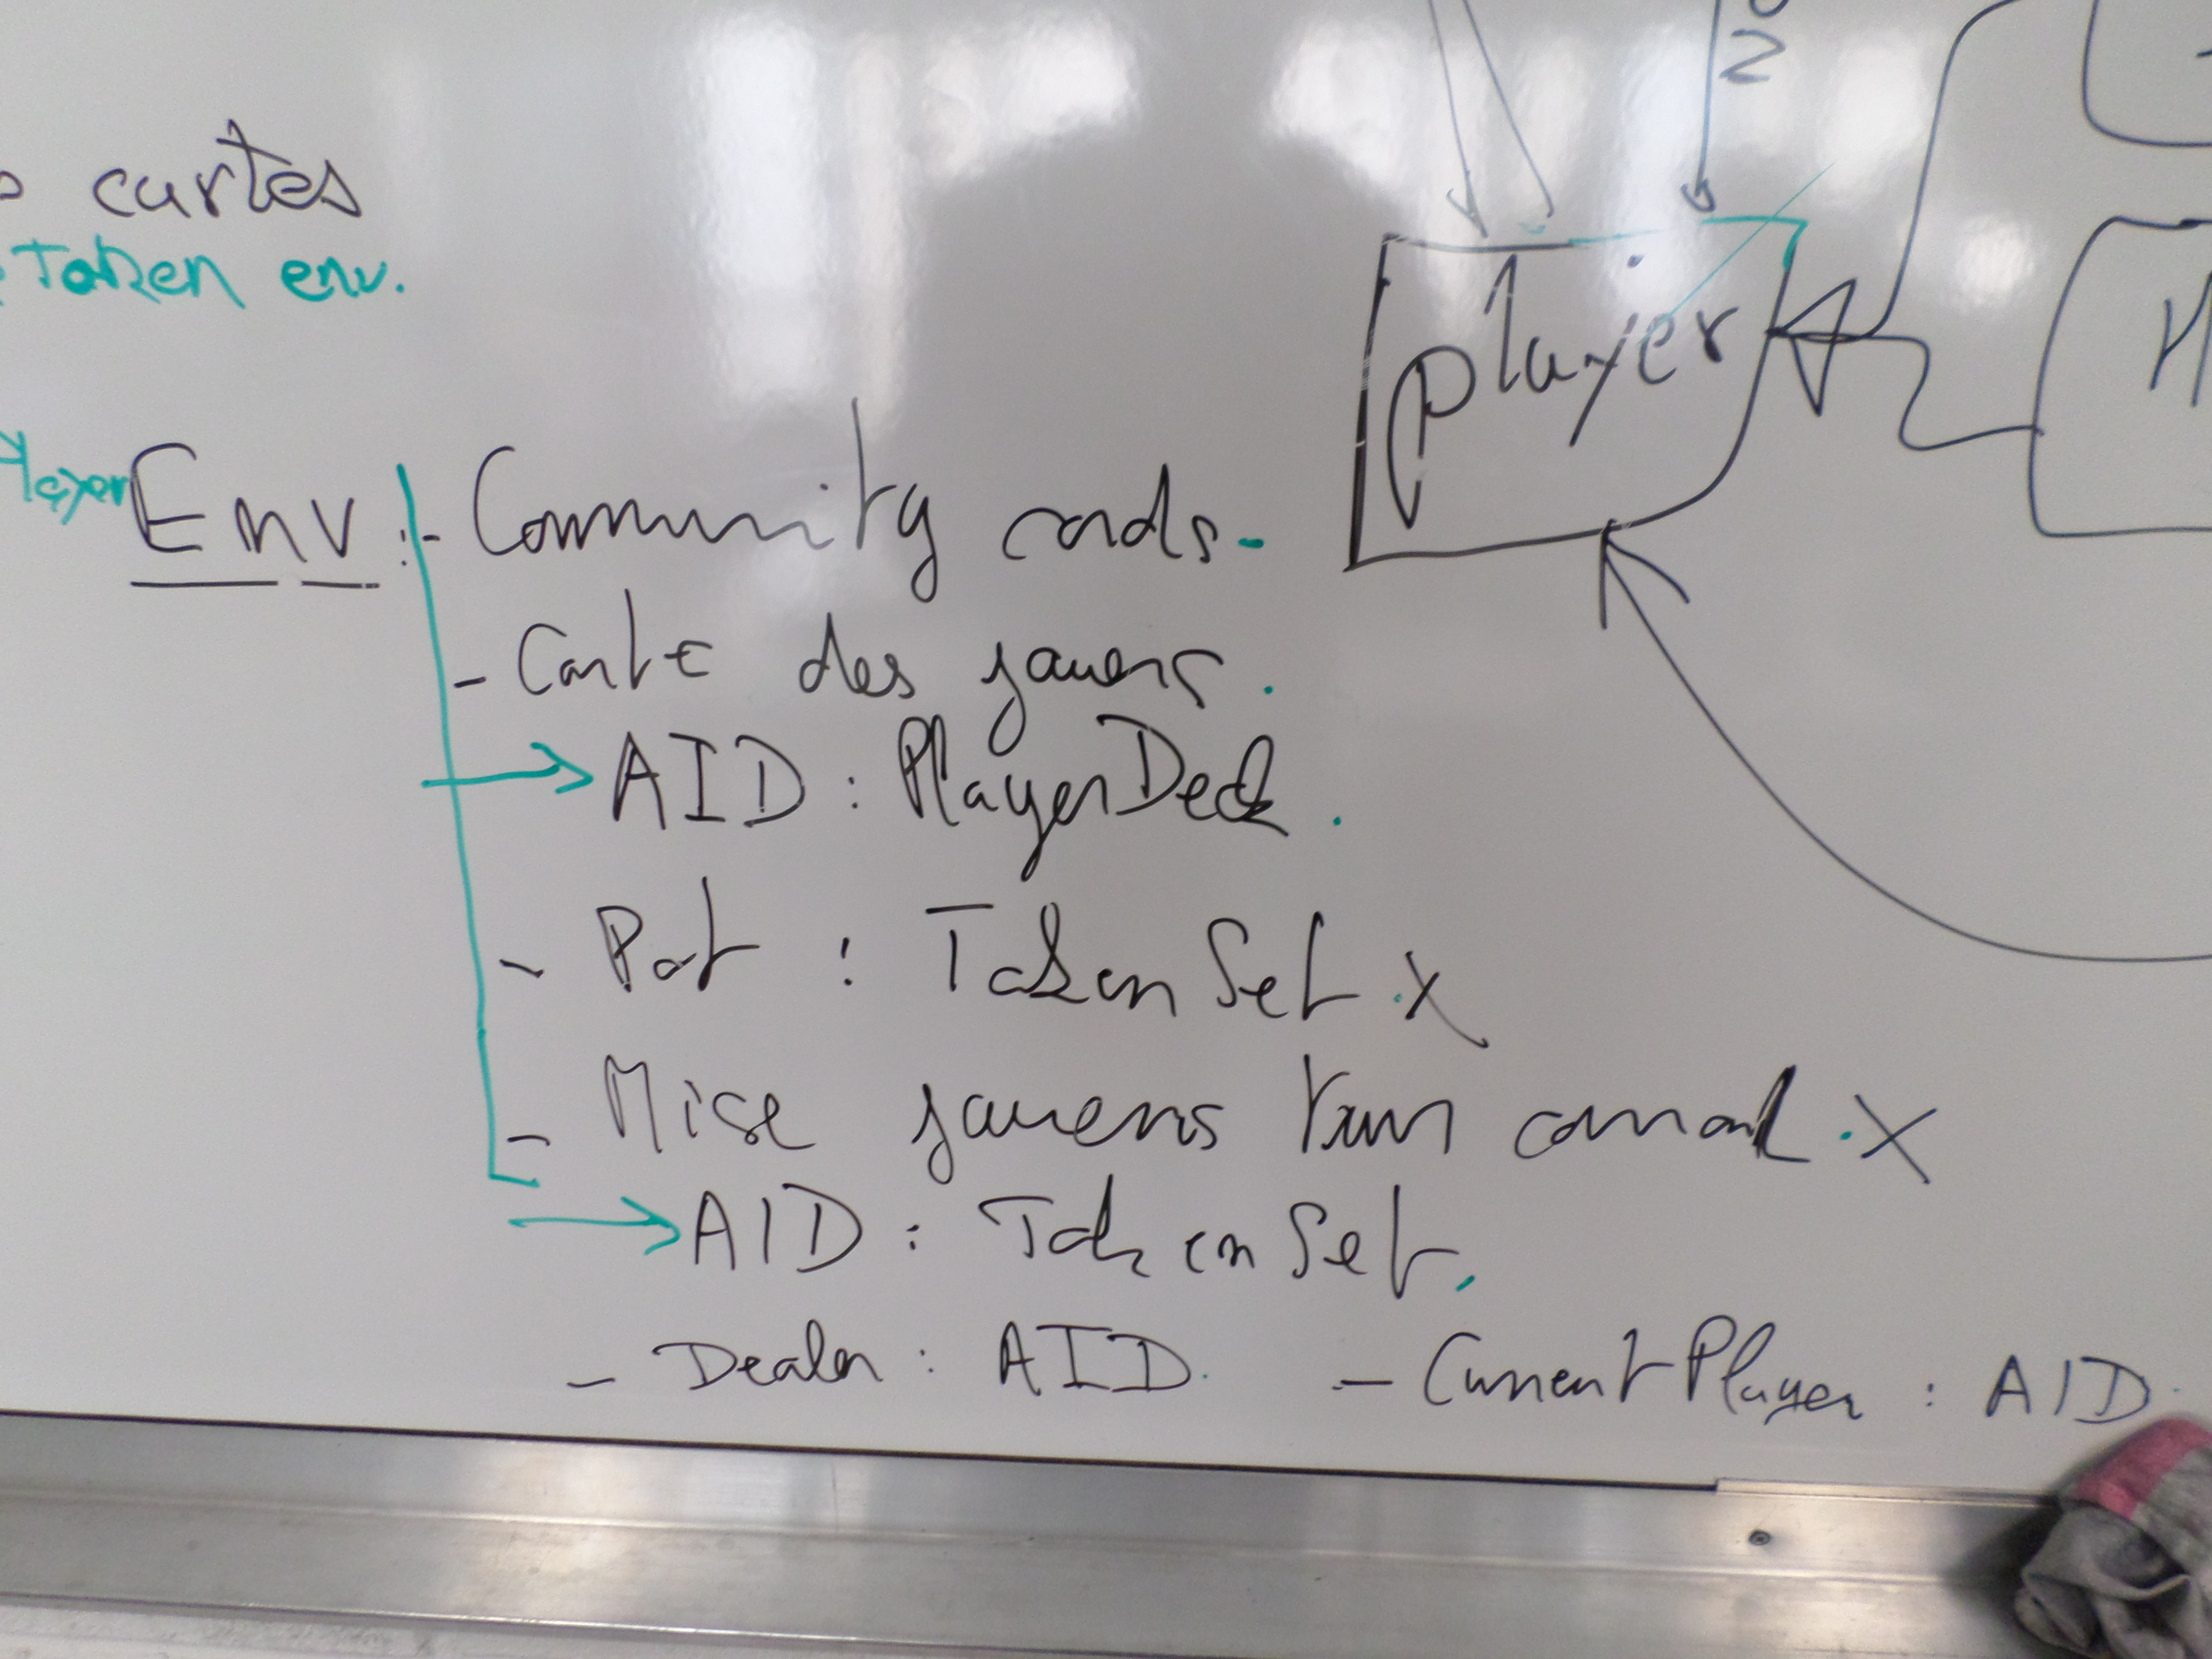 cartes
Token env.
player
Player
Env : - Community cards.
- Carte des joueurs.
AID : PlayerDeck.
- Pot : TokenSet. X
- Mise joueurs
AID : TokenSet.
- Dealer : AID. - CurrentPlayer : AID.